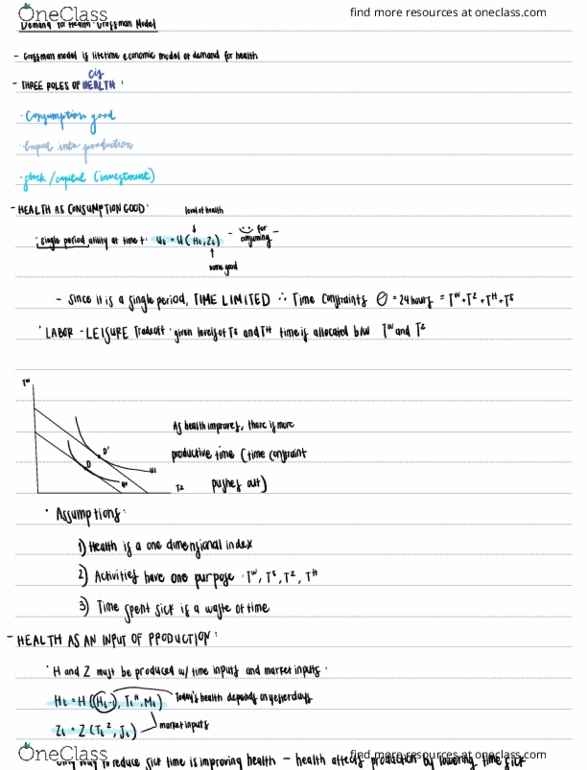 OneClass
find more resources at oneclass.com
Demand for Health: Grossman Model
- Grossman model is lifetime economic model of demand for health
- THREE ROLES OF HEALTH:
· Consumption good
· Input into production
· stock/capital (investment)
- HEALTH AS CONSUMPTION GOOD:
level of health
· single period utility at time t: Ut = U(Ht, Zt) - for consuming -
home good
- Since it is a single period, TIME LIMITED ∴ Time constraints Θ = 24 hours = Tᵂ+Tᶻ+Tᴴ+Tˢ
· LABOR-LEISURE Tradeoff: given levels of Tˢ and Tᴴ time is allocated b/w Tᵂ and Tᶻ
Tᵂ
As health improves, there is more
productive time (time constraint
pushes out)
Tᶻ
· Assumptions:
1) Health is a one dimensional index
2) Activities have one purpose: Tᵂ, Tˢ, Tᶻ, Tᴴ
3) Time spent sick is a waste of time
- HEALTH AS AN INPUT OF PRODUCTION:
· H and Z must be produced w/ time inputs and market inputs:
Ht = H(Ht-1, Ttᴴ, Mt) Today's health depends on yesterdays
Zt = Z(Ttᶻ, Jt) market inputs
OneClass
find more resources at oneclass.com
to reduce sick time is improving health - health affects production by lowering time sick